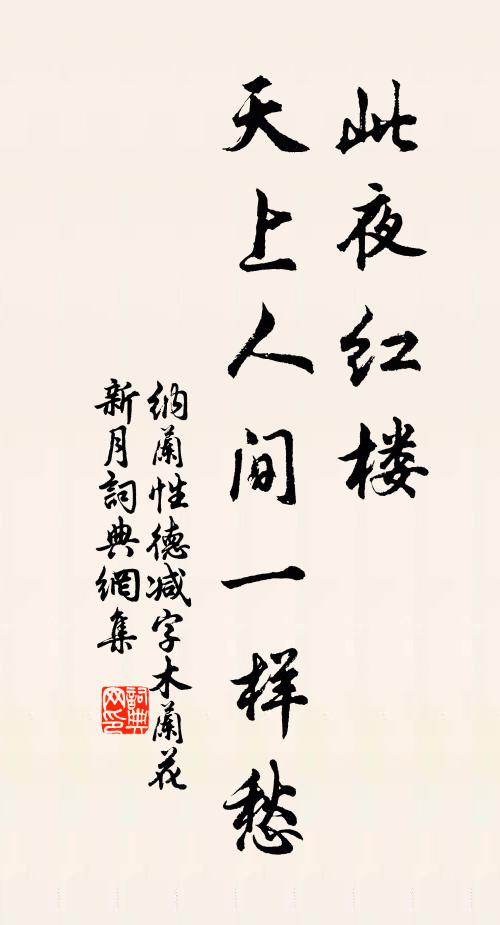 此夜红楼
天上人间一样愁
纳蘭性德减字木蘭花
新月詞典網集
詞典网印